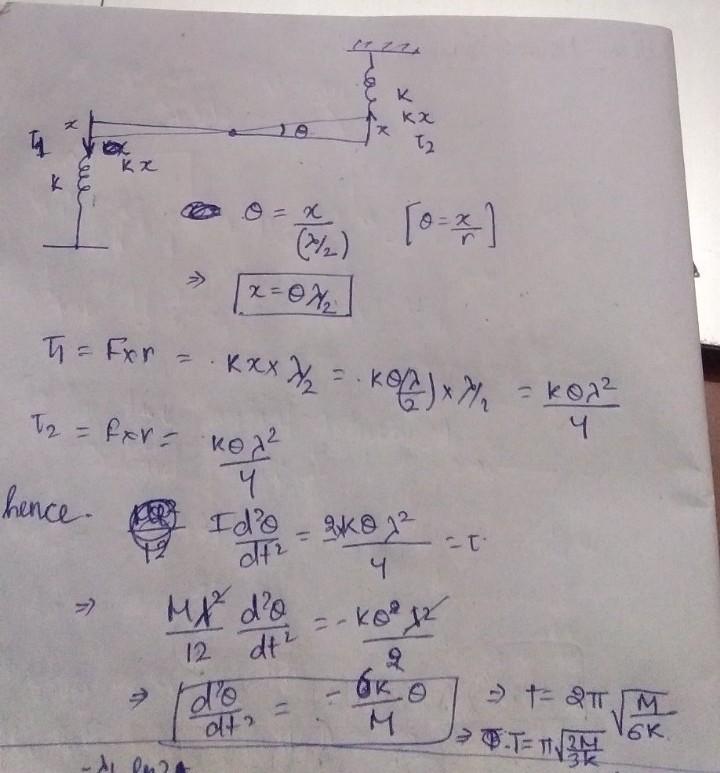 K
x
Kx
θ
x
τ1
τ2
Kx
K
θ = x/(λ/2) [θ = x/r]
⇒ x = θλ/2
τ1 = F×r = Kx × λ/2 = Kθ(λ/2) × λ/2 = Kθλ²/4
τ2 = F×r = Kθλ²/4
hence. I d²θ/dt² = 2Kθλ²/4 = τ
12
⇒ Mλ²/12 d²θ/dt² = -Kθλ²/2
⇒ d²θ/dt² = -6K/M θ ⇒ t = 2π√(M/6K)
⇒ T = π√(2M/3K)